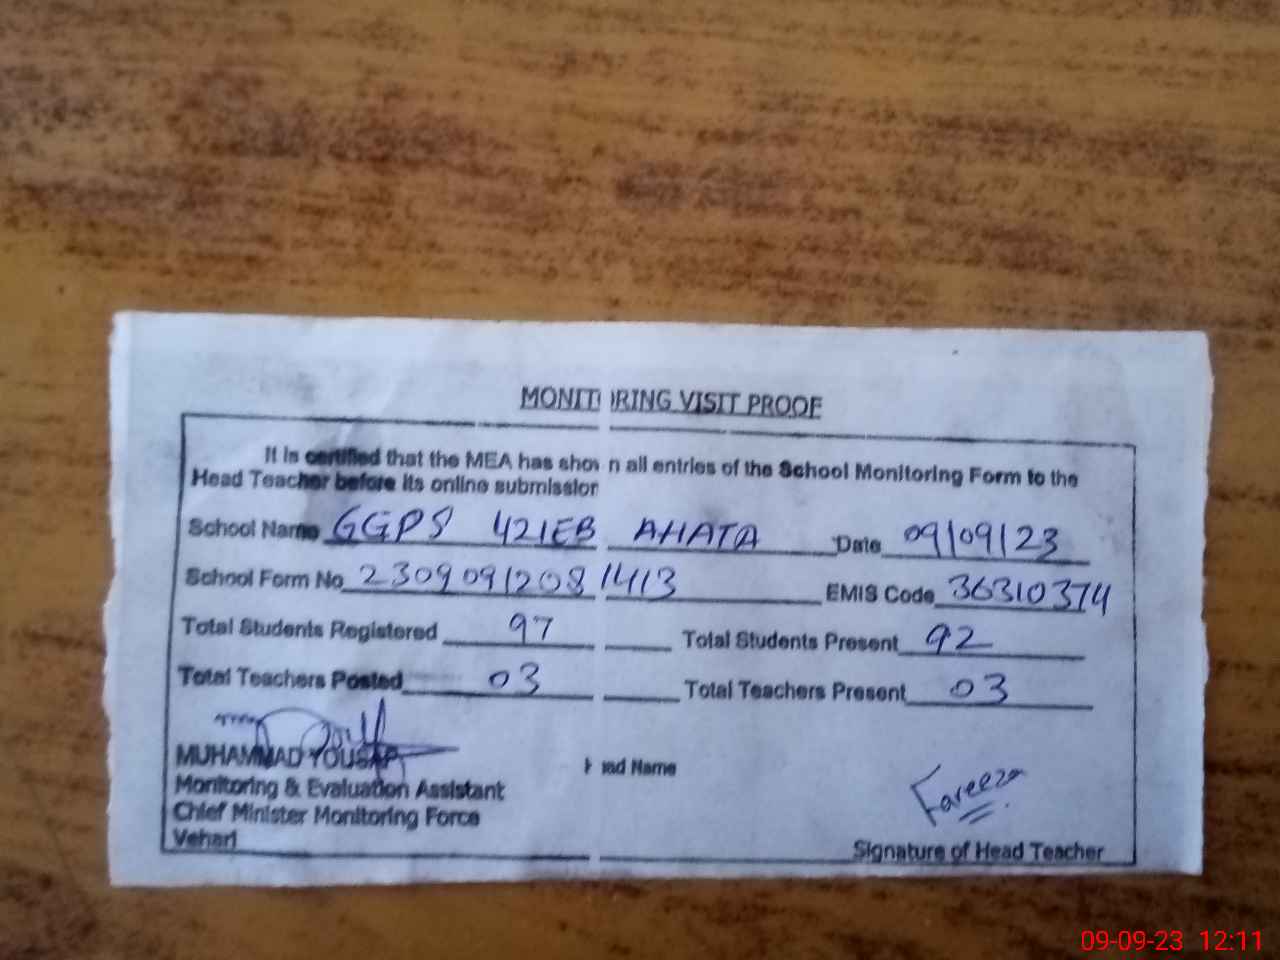 MONITORING VISIT PROOF
It is certified that the MEA has shown all entries of the School Monitoring Form to the
Head Teacher before its online submission
School Name GGPS 421EB AHATA Date 09/09/23
School Form No 23090912081413 EMIS Code 36310374
Total Students Registered 97 Total Students Present 92
Total Teachers Posted 03 Total Teachers Present 03
MUHAMMAD YOUSAF
Head Name
Monitoring & Evaluation Assistant
Chief Minister Monitoring Force
Vehari
Fareeza
Signature of Head Teacher
09-09-23 12:11